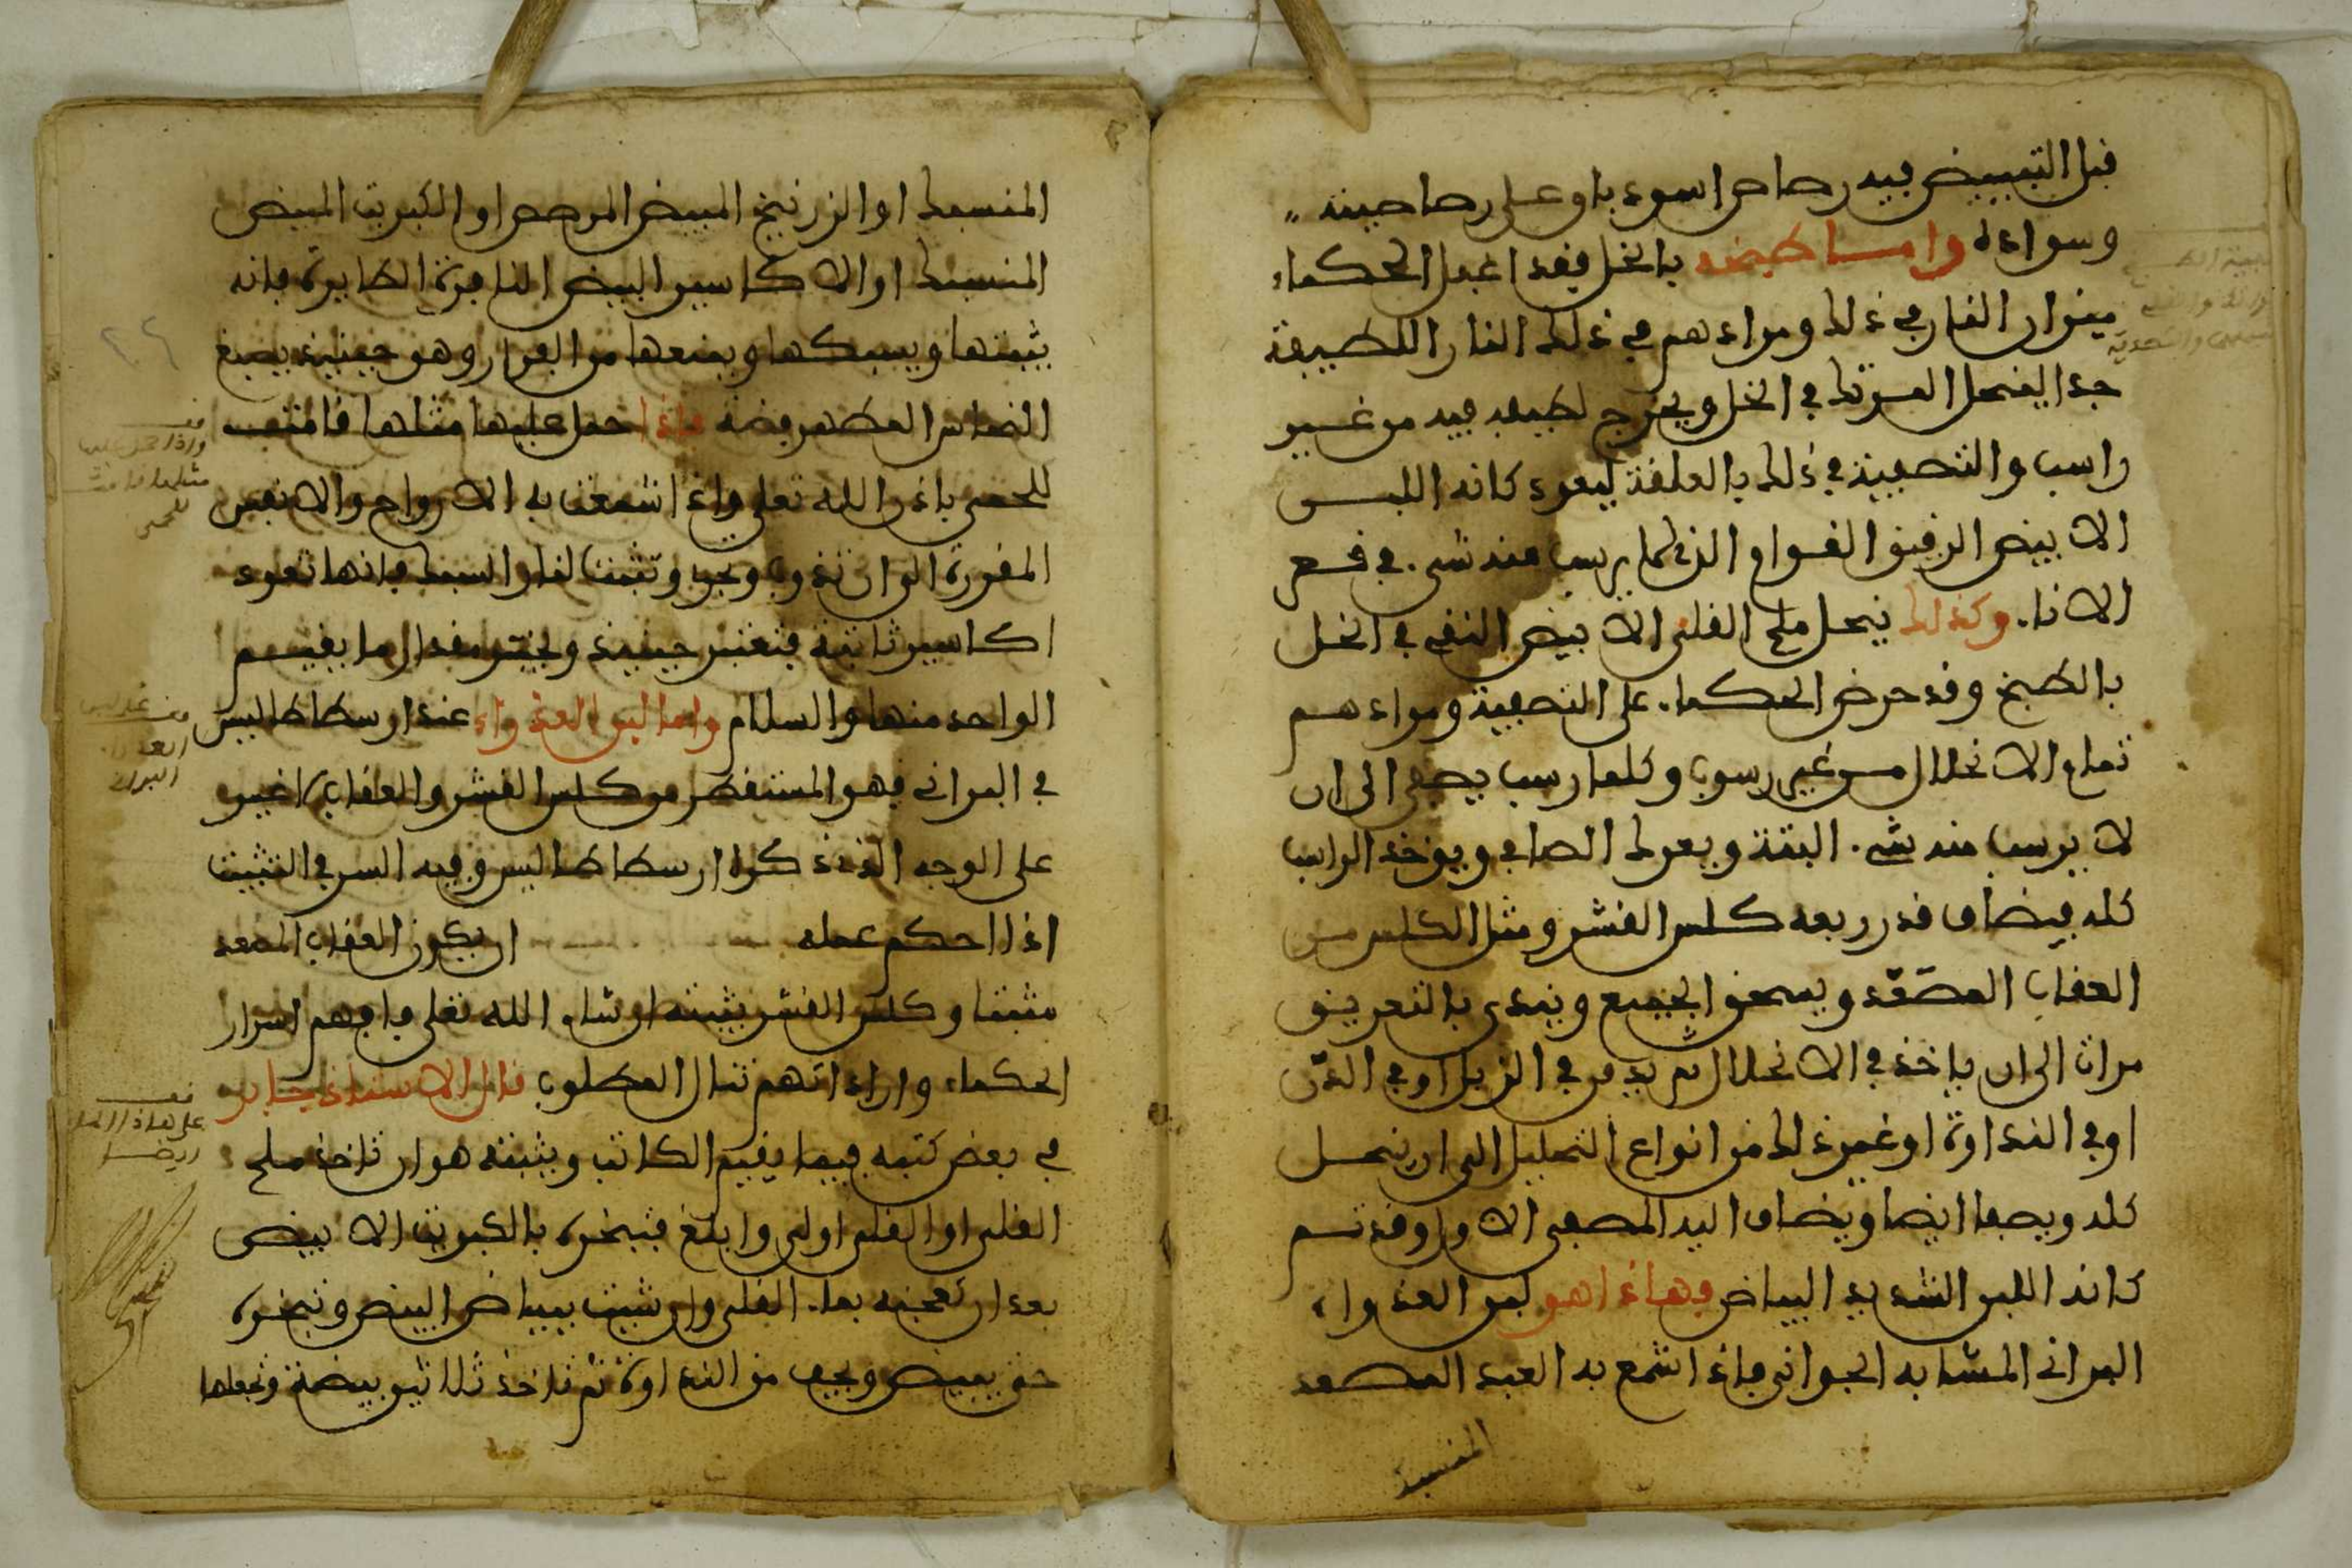 قبل التبييض فيه رصاص اسود باو على رصاصيته
وسواده واما طبخه بالخل فقد اغفل الحكماء
ميزان النار في ذلك ومرادهم في ذلك النار اللطيفة
جدا لينحل المرتك في الخل ويخرج لطيفه فيه من غير
راسب والتصفية في ذلك بالعلقة ليعود كانه اللبن
الابيض الرقيق القوام الذي لما يرسب منه شيء في قعر
الاناء وكذلك ينحل ملح القلي الابيض النقي في الخل
بالطبخ وقد حرض الحكماء على التصفية ومرادهم
تمام الانحلال من غير رسوب وكلما رسب يصفى الى ان
لا يرسب منه شيء البتة ويعزل الصافي ويوخذ الراسب
كله فيضاف قدر ربعه كلس القشر ومثل الكلس من
العقاب المصعّد ويسحق الجميع ويندى بالتعريق
مرات الى ان ياخذ في الانحلال ثم يدفن في الزبل او في الدّن
او في النداوة او غير ذلك من انواع التحليل الى ان ينحل
كله ويصفا ايضا ويضاف اليه المصفى الاول وقد تم
كانه اللبن الشديد البياض فهاذا هو لبن العذراء
البراني المشابه الجواني فاذا شمع به العبد المصعد
المنسبك
المنسبك او الزرنيخ المبيض المرصص او الكبريت المبيض
المنسبك او الاكاسير البيض النافرة الطايرة فانه
يثبتها ويسبكها ويمنعها من الفرار وهو حينيذ يصبغ
النحاس المطهر فضة فاذا حمل عليها مثلها قامت
للحمى باذن الله تعلى واذا شمعت به الارواح والانفس
المقررة الى ان تذوب وتجري وتثبت لنار السبك فانها تعود
اكاسير ثابتة فتعتبر حينيذ وتختبر مقدار ما يقيم
الواحد منها والسلام واما لبن العذراء عند ارسطاطاليس
في البراني فهو المستقطر من كلس القشر والعقاب لا غير
على الوجه الذي ذكره ارسطاطاليس وفيه السر في التثبيت
اذا احكم عمله ان يكون العقاب المصعد
مثبتا وكلس القشر يثبته ان شاء الله تعلى فافهم اسرار
الحكماء واراداتهم تنال المطلوب قال الاستاذ جابر
في بعض كتبه فيما يقيم الكاتب ويثبته هو ان تاخذ ملح
القلي او القلي اولى وابلغ فتبخره بالكبريت الابيض
بعد ان تعجنه بماء القلي وان شيت ببياض البيض وتبخره
حتى يبيض ويجف من النداوة ثم تاخذ ثلاثين بيضة وتجعلها
واذا حمل عليها
مثلها قامت
للحمى
العذراء
البراني
على هاذا العمل
ايضا